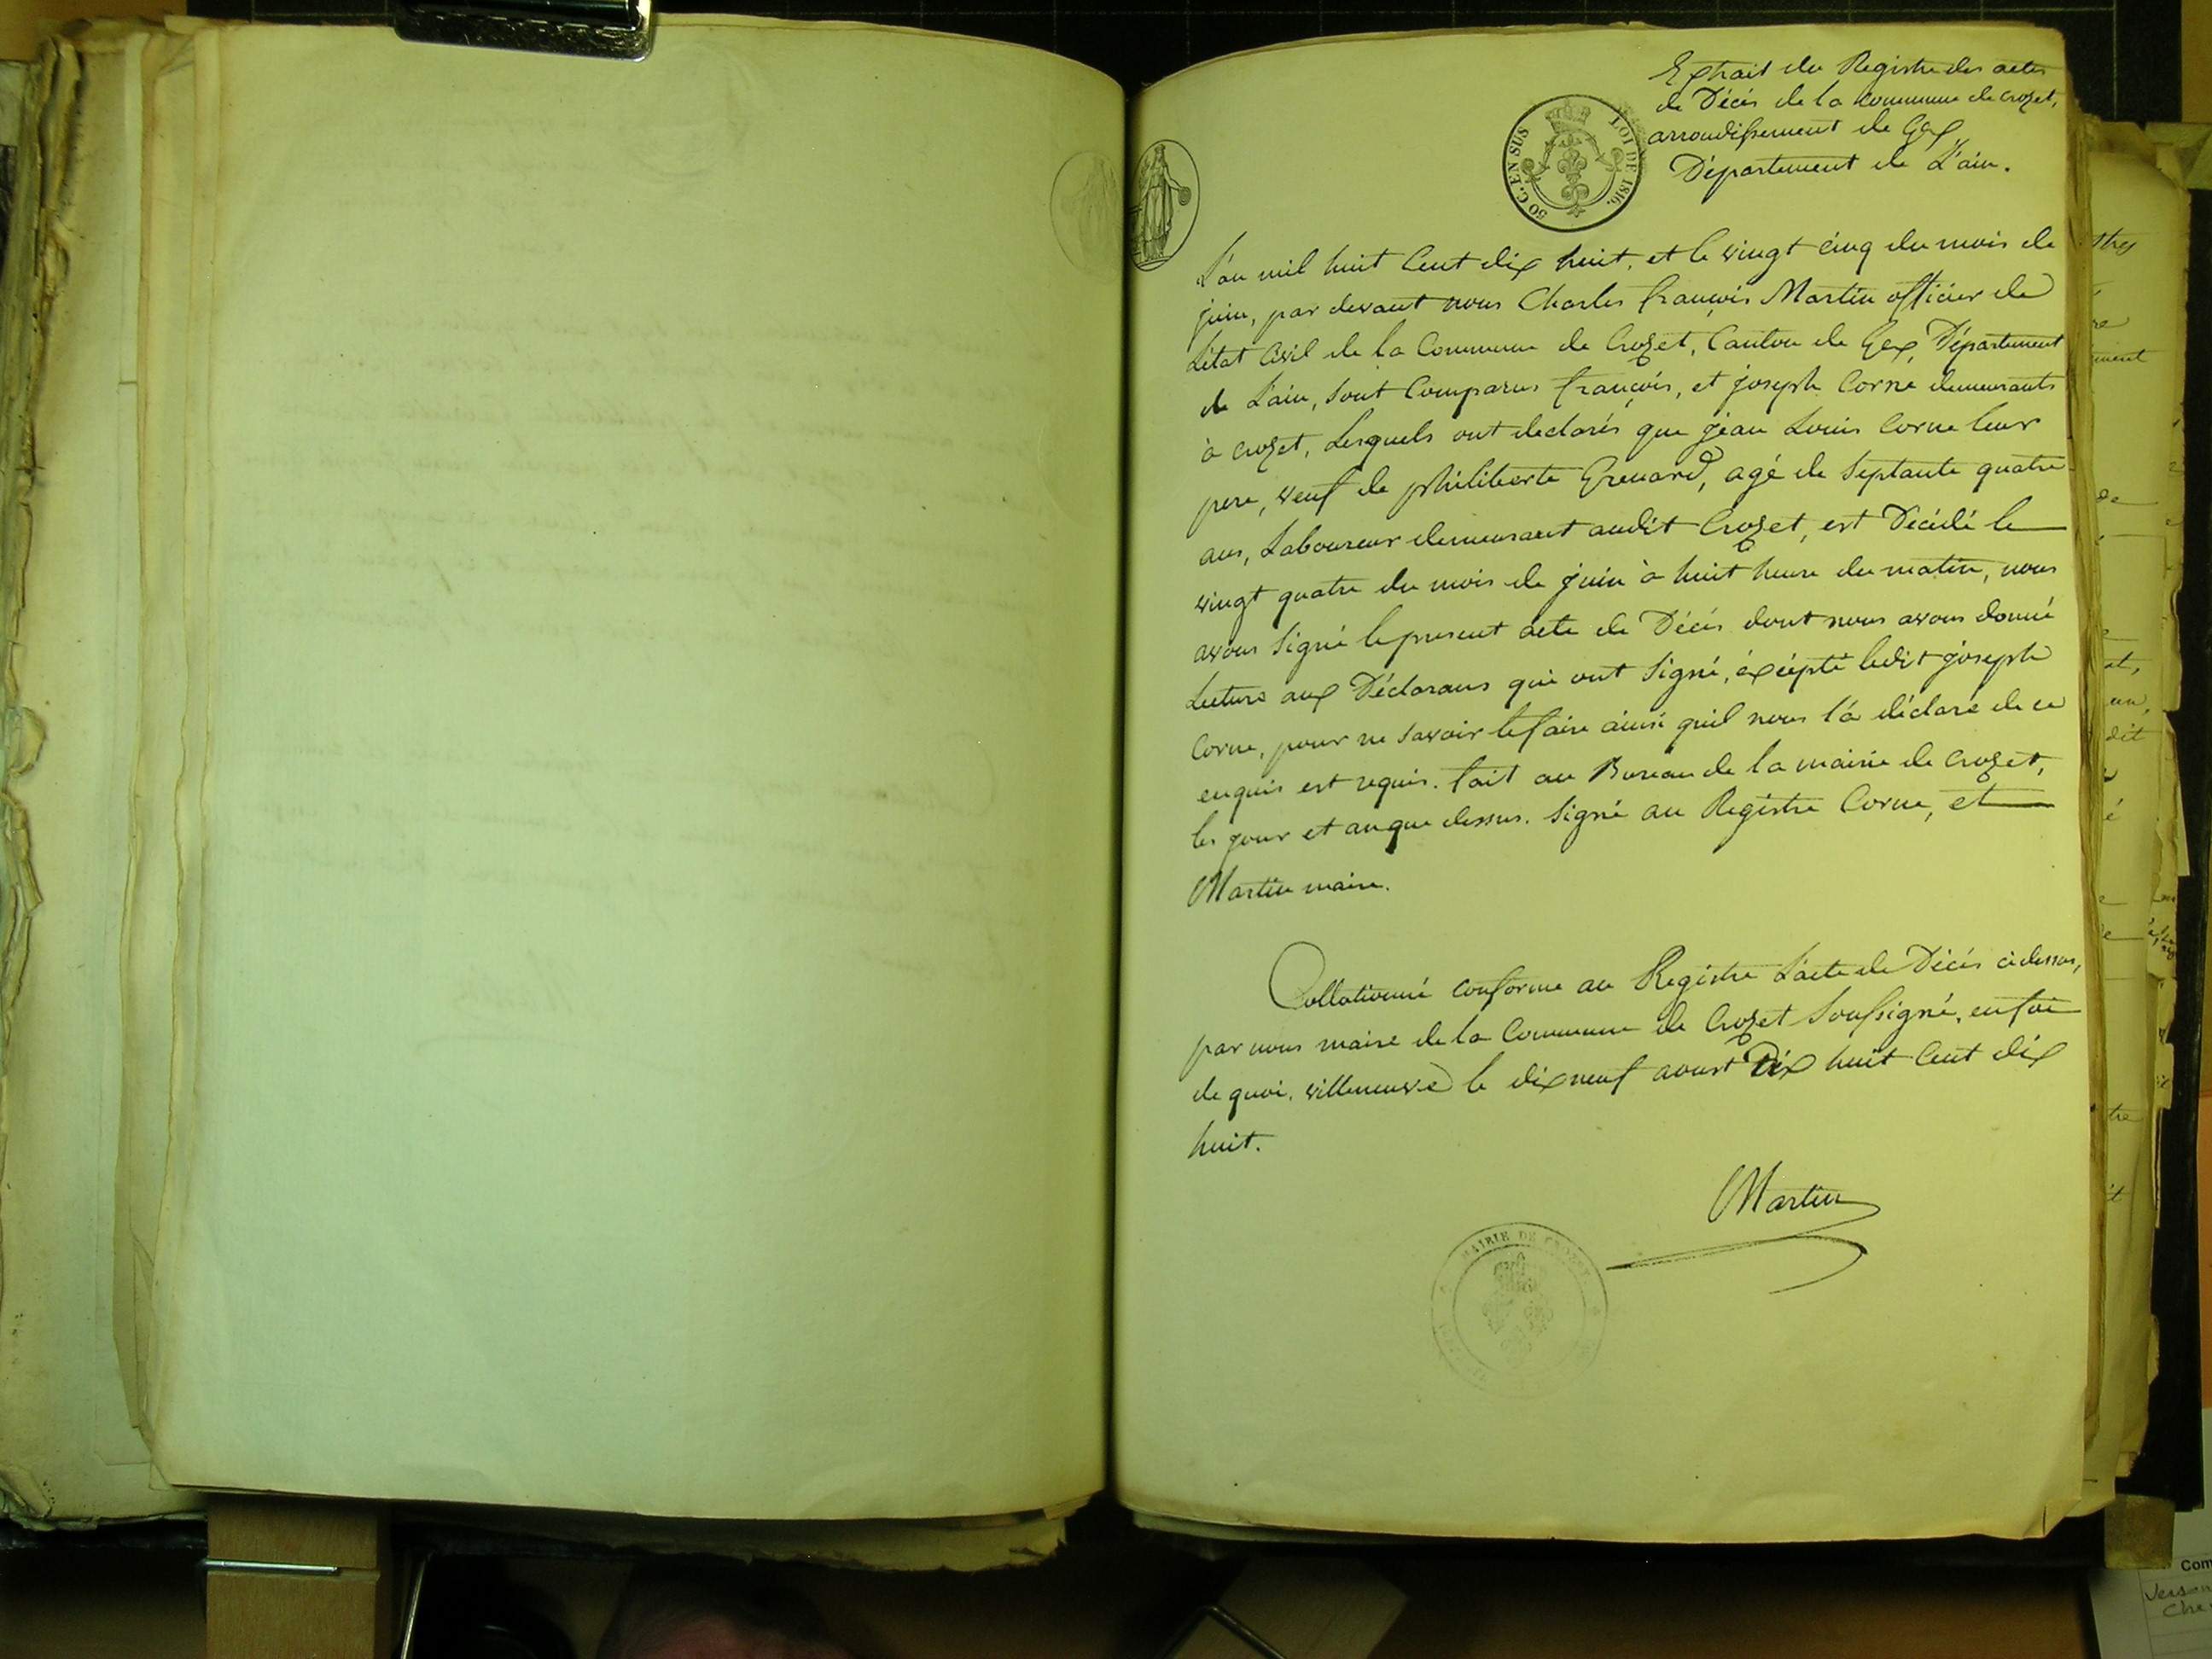 Extrait du Registre des actes
de Décés de la commune de crozet,
arrondissement de Gex
Département de L'ain.
50 C. EN SUS
LOI DE 1816.
L'an mil huit Cent dix huit, et le vingt cinq du mois de
juin, par devant nous Charles françois Martin officier de
L'état Civil de la Commune de Crozet, Canton de Gex, Département
de L'ain, sont Comparus françois, et joseph Corne demeurants
à crozet, Lesquels ont declarés que jean Louis Corne leur
pere, veuf de philiberte Grenard, agé de Septante quatre
ans, Laboureur demeurant audit Crozet, est Décédé le
vingt quatre du mois de juin à huit heure du matin, nous
avons signé le present acte de Décés dont nous avons donné
Lecture aux Déclarans qui ont signé, éxcépté ledit joseph
Corne, pour ne savoir le faire ainsi quil nous l'a déclaré de ce
enquis est requis. fait au Bureau de la mairie de crozet,
les jour et an que dessus. signé au Registre Corne, et
Martin maire.
Collationné conforme au Registre L'acte de Décés ci dessus,
par nous maire de la Commune de Crozet Soussigné, en foi
de quoi. villeneuve le dix neuf aoust Dix huit Cent dix
huit.
Martin
MAIRIE DE CROZET